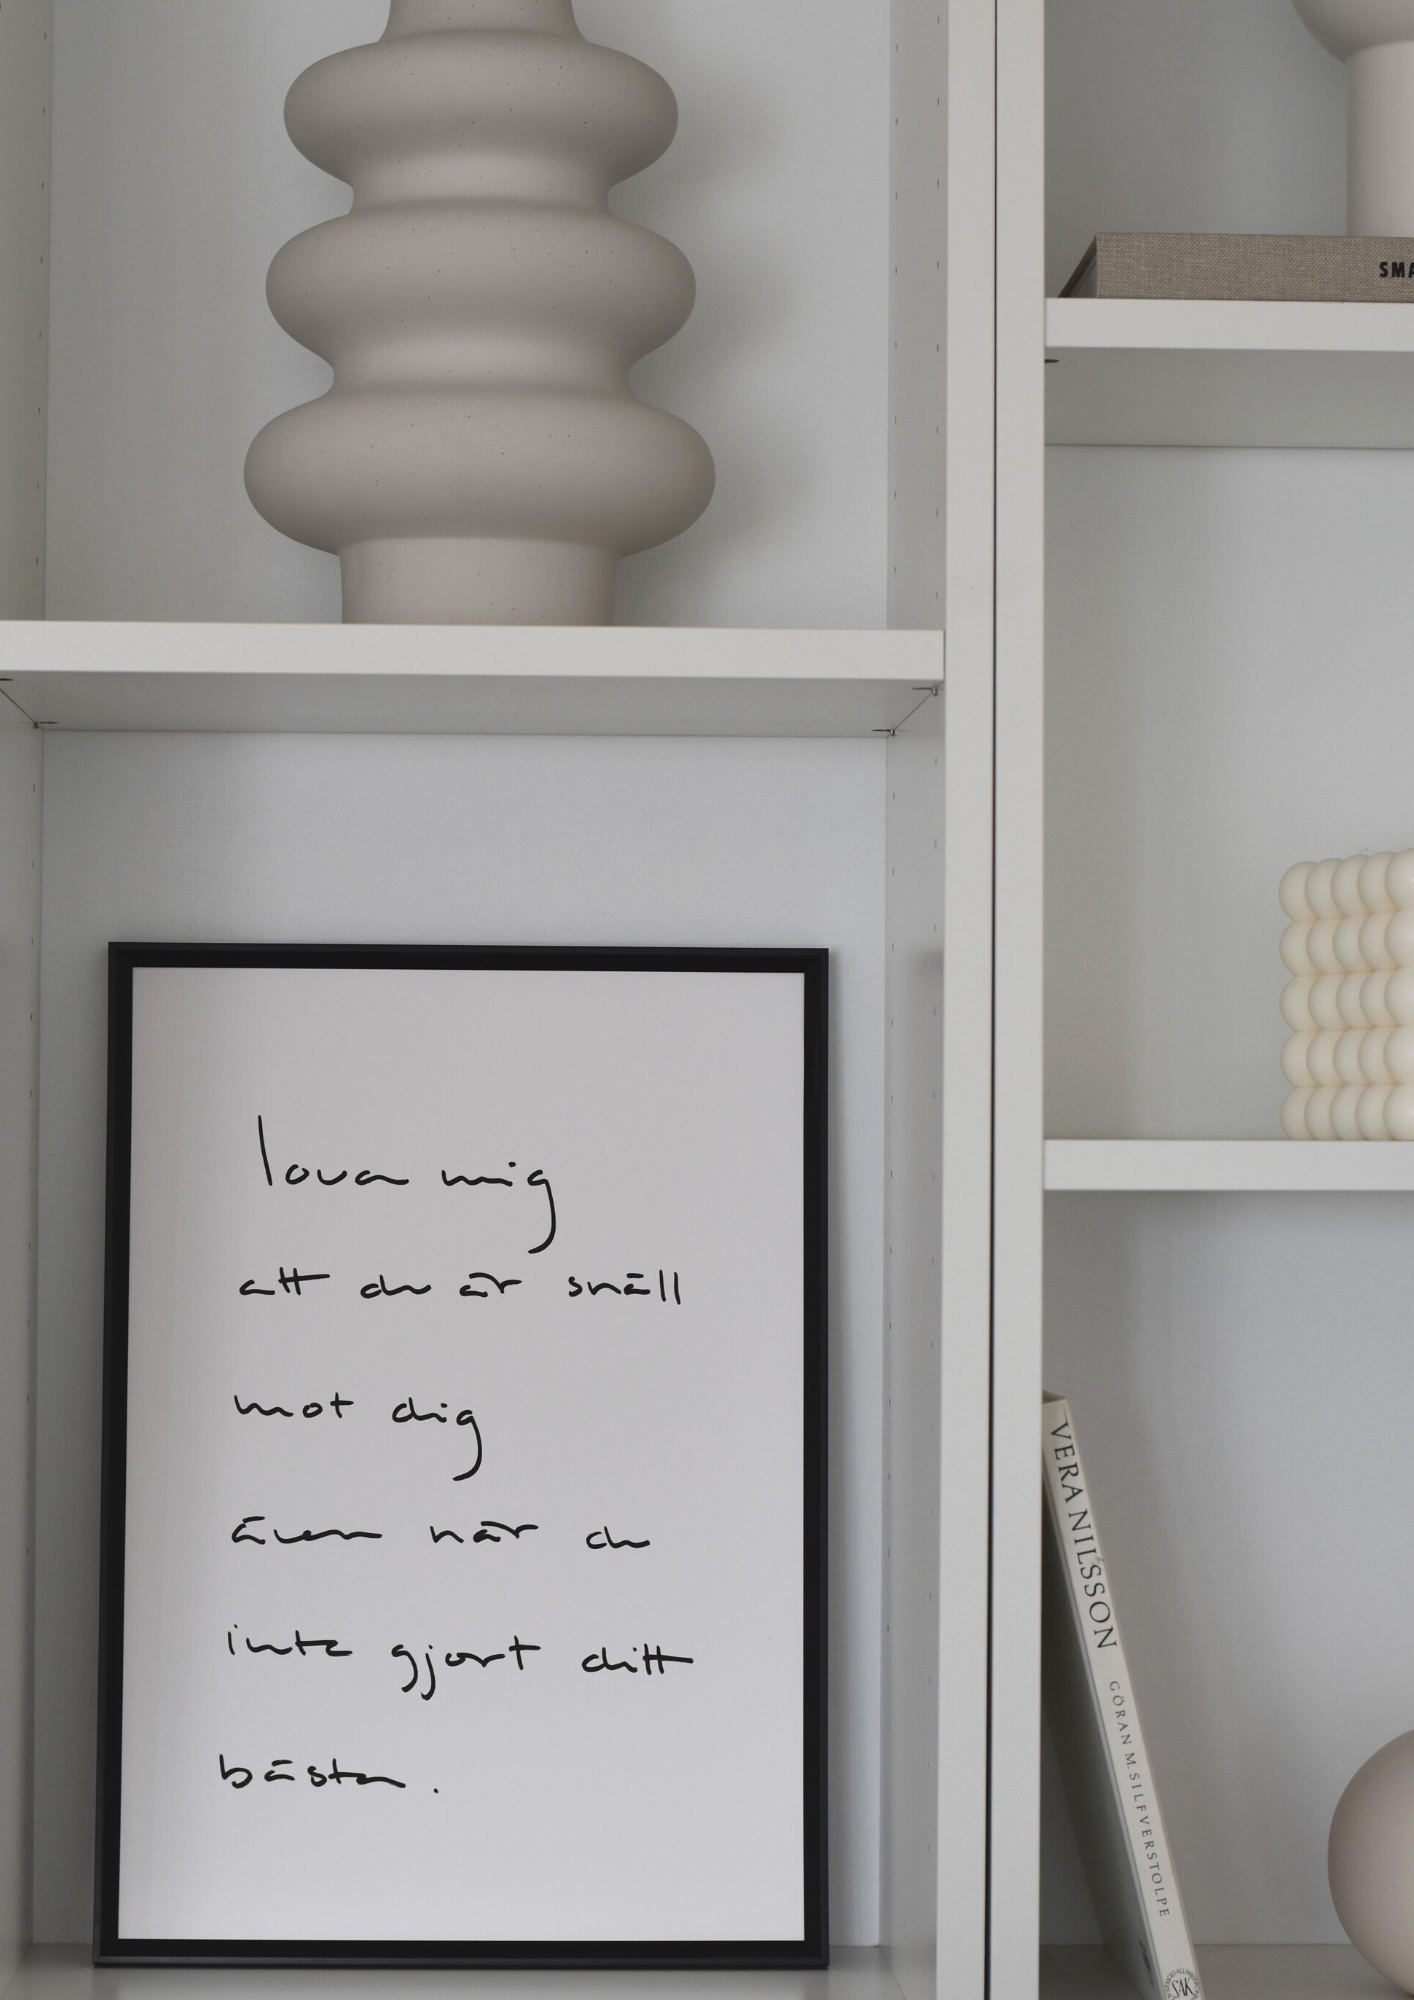 lova mig
att du är snäll
mot dig
även när du
inte gjort ditt
bästa.
SMA
VERA NILSSON GÖRAN M. SILFVERSTOLPE
SAK